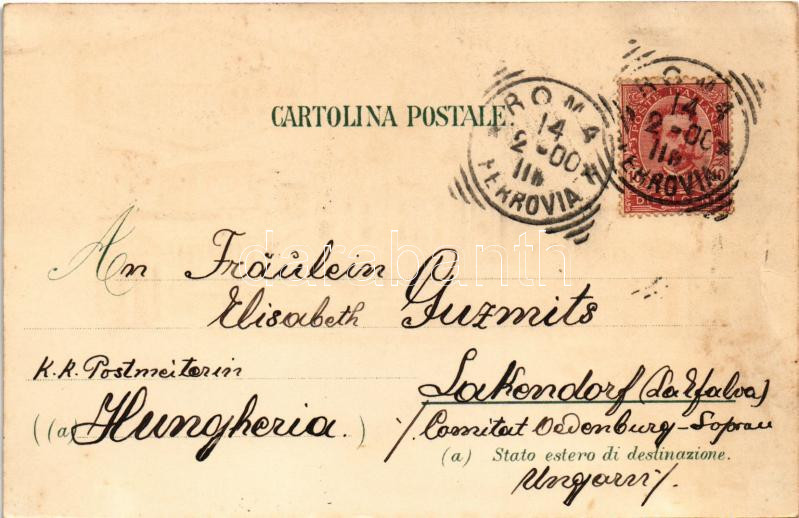 CARTOLINA POSTALE
ROMA
14
2-00
11M
FERROVIA
ROMA
14
2-00
11M
FERROVIA
POSTE ITALIANE
An Fräulein
Elisabeth Guzmits
darabanth
K.K. Postmeiterin
Lakendorf (Latzfalva)
((a) Hungheria.)
/Comitat Oedenburg-Sopron
(a) Stato estero di destinazione.
Ungarn/.